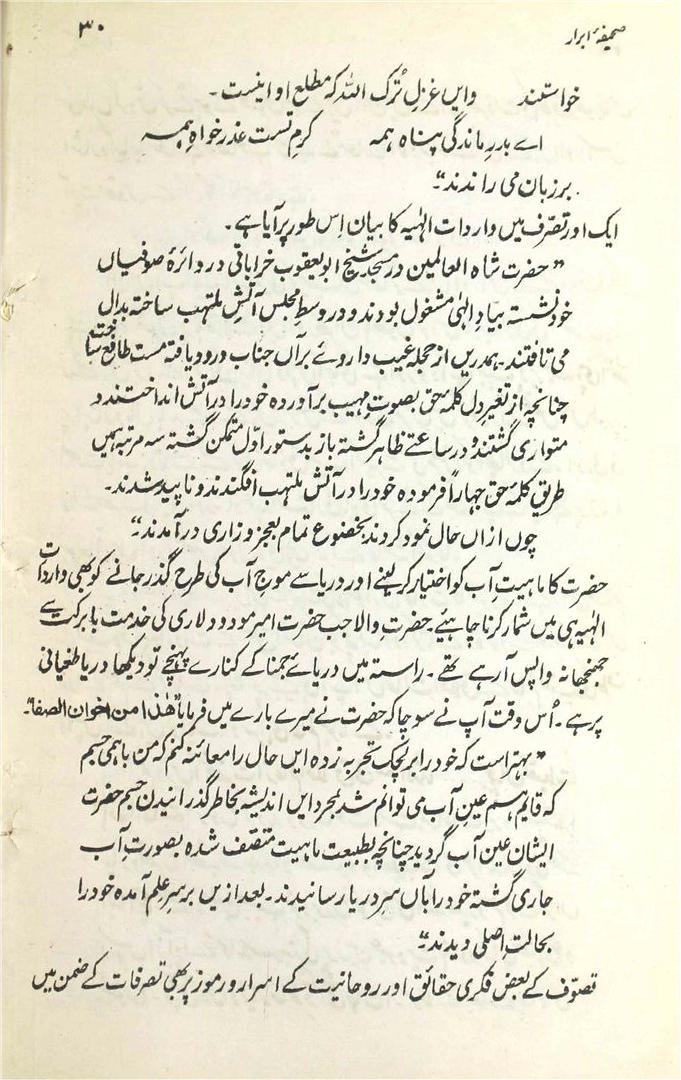 صحیفۂ ابرار
۳۰
خواستند وایں غزلِ تُرک اللہ کہ مطلع او اینست۔
اے بدرِ ماندگی پناہ ہمہ کرمِ تست عذر خواہِ ہمہ
برزبان می راندند"۔
ایک اور تصرّف میں واردات الٰہیہ کا بیان اِس طور پر آیا ہے۔
"حضرت شاہ العالمین در مسجد شیخ ابو یعقوب خراباتی در دائرۂ صوفیاں
خود نشستہ بیادِ الٰہی مشغول بودند و در وسطِ مجلس آتشِ ملتہب ساختہ بداں
می تافتند۔ ہمدریں از حجلہ غیب داروئے برآں جناب ورود یافتہ مست طافح ساخت
چنانچہ از تغیرِ دل کلمۂ حق بصوتِ مہیب برآوردہ خود را در آتش انداختند و
متواری گشتند و در ساعتے ظاہر گشتہ باز بدستور اوّل متمکن گشتہ سہ مرتبہ ہمیں
طریق کلمۂ حق جہاراً فرمودہ خود را در آتش ملتہب افگندند و ناپید شدند۔
چوں ازاں حال نمود کردند بخضوع تمام بعجز و زاری در آمدند"۔
حضرت کا ماہیتِ آب کو اختیار کرلینے اور دریا سے موجِ آب کی طرح گذر جانے کو بھی واردات
الٰہیہ ہی میں شمار کرنا چاہیئے۔ حضرتِ والا جب حضرت امیر مودود لاری کی خدمت بابرکت سے
جھنجھانہ واپس آرہے تھے۔ راستہ میں دریائے جمنا کے کنارے پہنچے تو دیکھا دریا طغیانی
پر ہے۔ اُس وقت آپ نے سوچا کہ حضرت نے میرے بارے میں فرمایا "ھٰذا من اخوان الصفا"۔
"بہتر است کہ خود را بر محک تجربہ زدہ ایں حال را معائنہ کنم کہ من باہمی جسم
کہ قایم ہستم عینِ آب می توانم شد بمجرد ایں اندیشہ بخاطر گذرانیدن جسم حضرت
ایشان عین آب گردید چنانچہ بطبیعت ماہیت متصف شدہ بصورتِ آب
جاری گشتہ خود را باں سرِ دریا رسانیدند۔ بعد ازیں برسرِ علم آمدہ خود را
بحالتِ اصلی دیدند"۔
تصوّف کے بعض فکری حقائق اور روحانیت کے اسرار و رموز پر بھی تصرفات کے ضمن میں